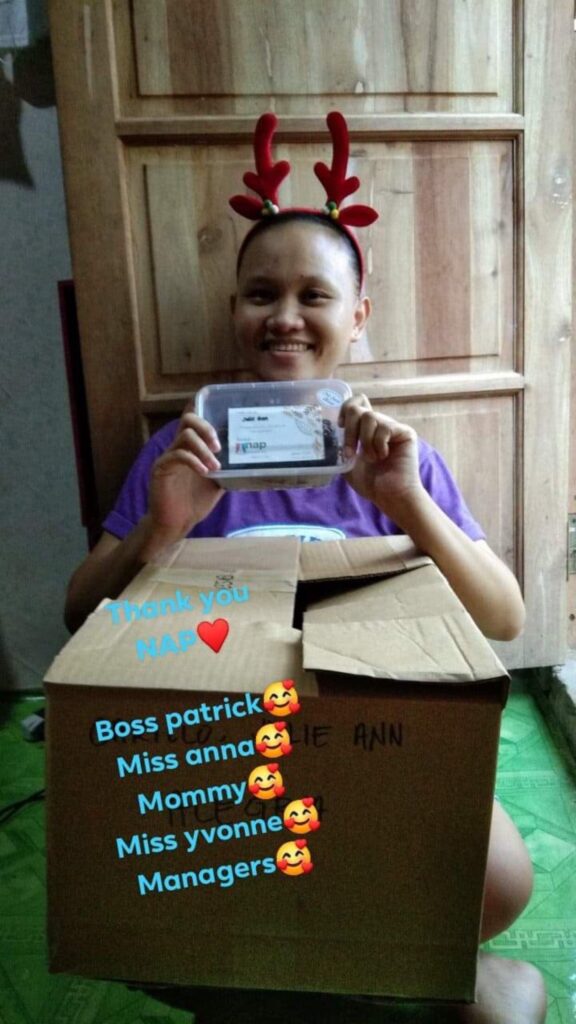 Julie Ann
nap
Thank you
NAP❤️
Boss patrick🥰
Miss anna🥰
LIE ANN
Mommy🥰
Miss yvonne🥰
Managers🥰